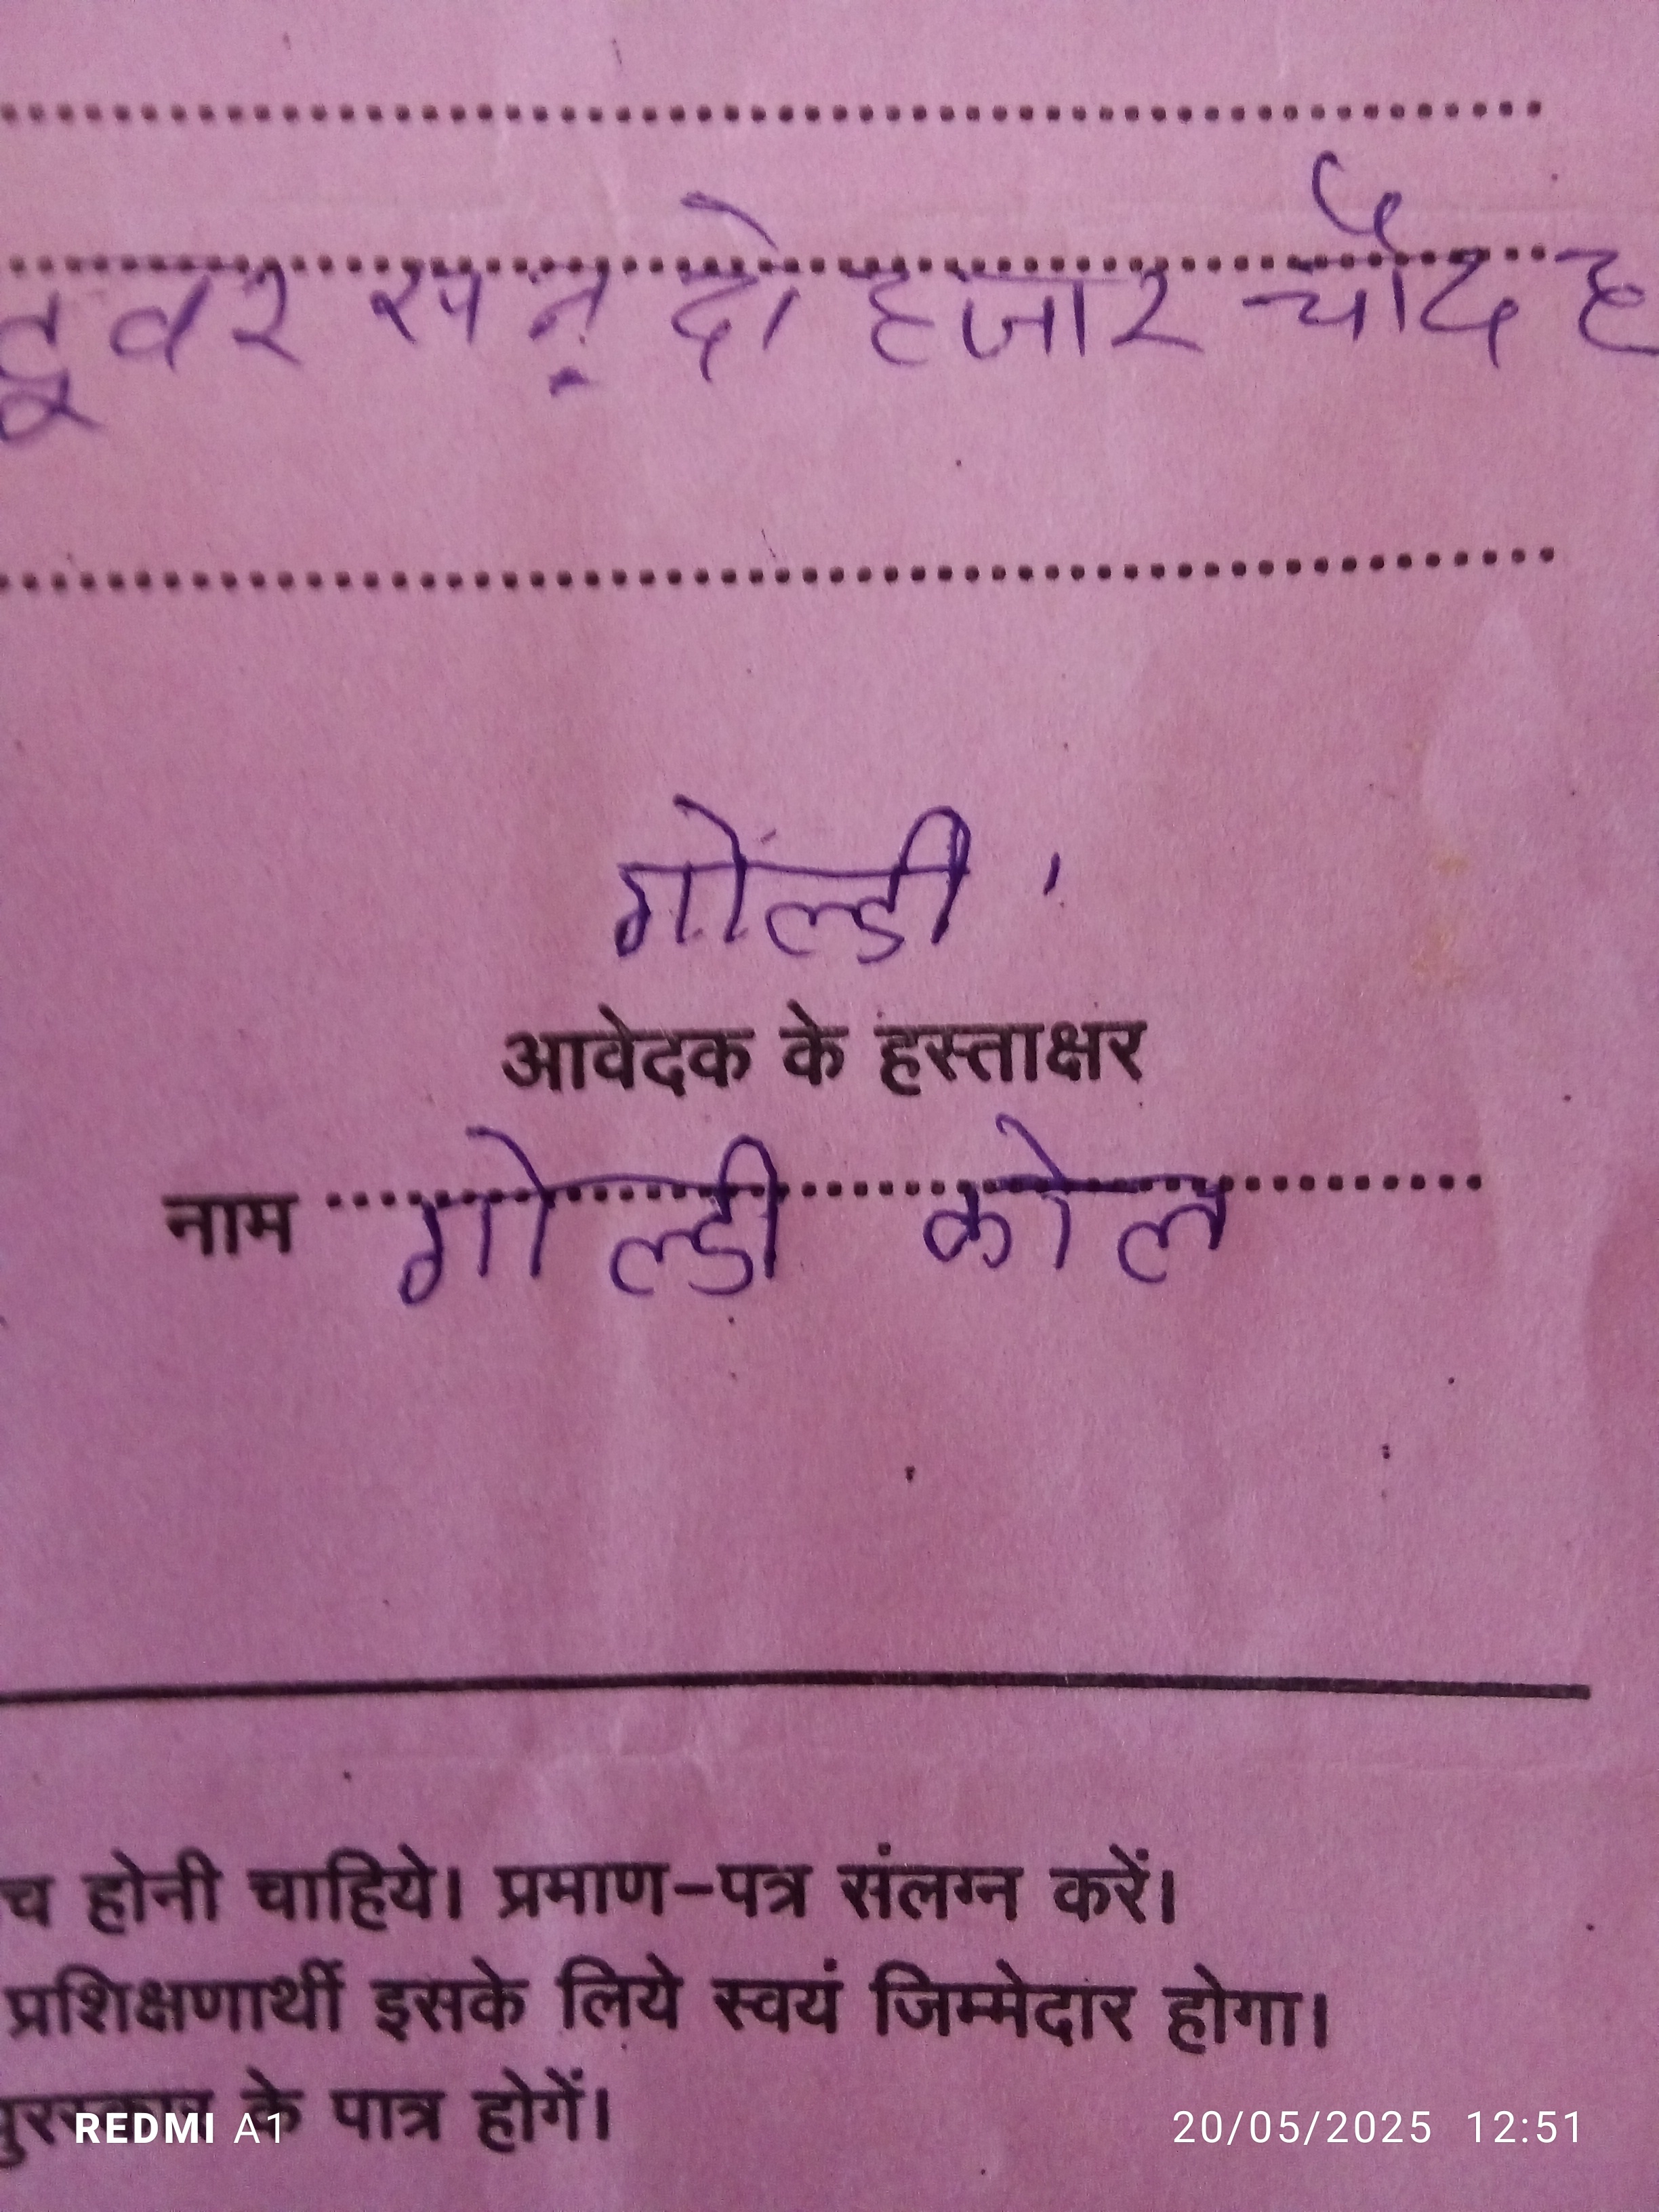 टूवर सन् दो हजार चौदह
गोल्डी
आवेदक के हस्ताक्षर
नाम गोल्डी कोल
च होनी चाहिये। प्रमाण-पत्र संलग्न करें।
प्रशिक्षणार्थी इसके लिये स्वयं जिम्मेदार होगा।
के पात्र होगें।
REDMI A1 20/05/2025 12:51